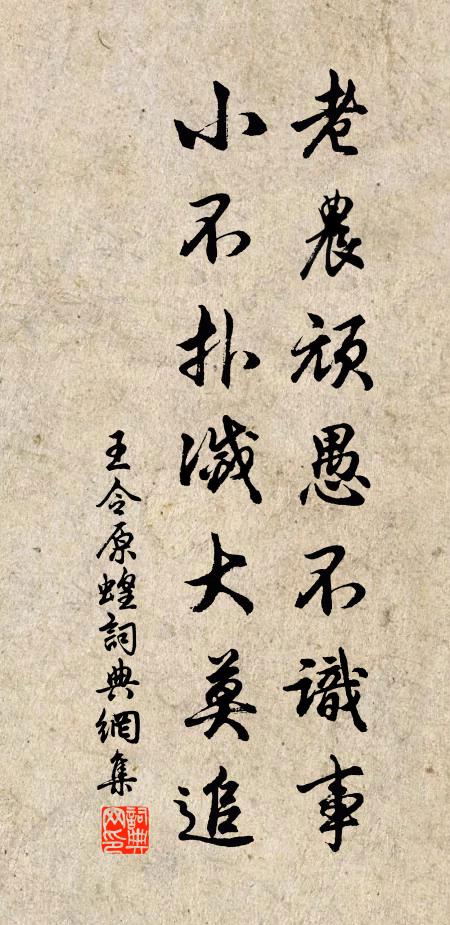 老農頑愚不識事
小不扑滅大莫追
王令原蝗詞典網集
詞典網印